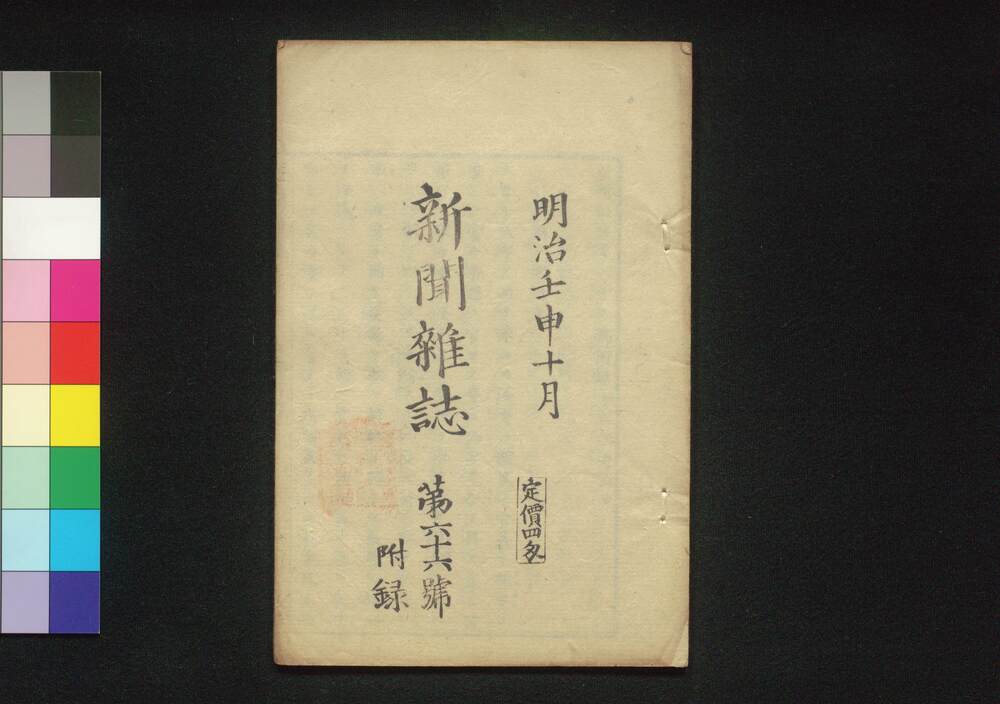 明治壬申十月
定價四匁
新聞雜誌 第六十六號
附録